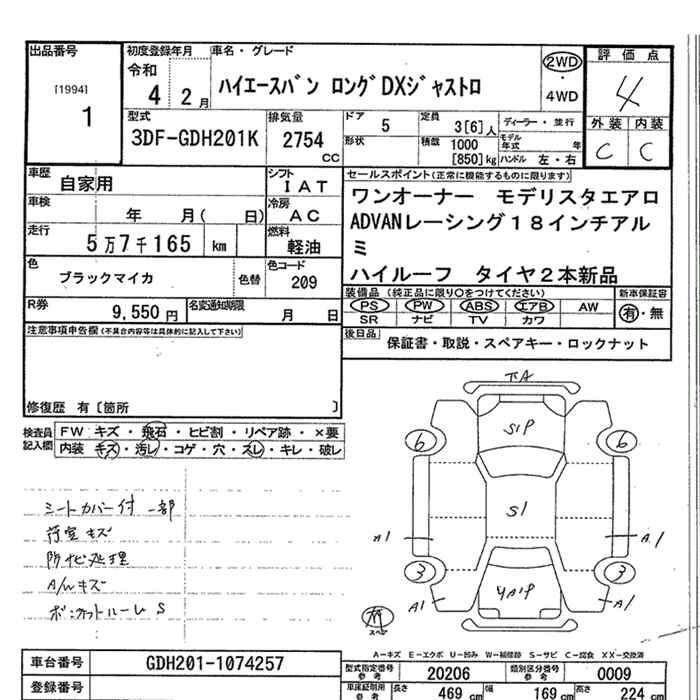 出品番号
[1994]
1
初度登録年月
令和
4 2月
車名・グレード
ハイエースバン ロングDXジャストロ
2WD
・
4WD
評価点
4
外装 内装
C C
型式
3DF-GDH201K
排気量
2754
CC
ドア 5
形状
定員 3[6]人
積載 1000
[850]kg
ディーラー・並行
モデル年式 年
ハンドル 左・右
車歴
自家用
シフト
IAT
車検
年 月( 日)
冷房
AC
走行
5万7千165 km
燃料
軽油
色
ブラックマイカ
色替
色コード
209
R券
9,550円
名変通知期限
月 日
セールスポイント(正常に機能するものに限ります)
ワンオーナー モデリスタエアロ
ADVANレーシング18インチアル
ミ
ハイルーフ タイヤ2本新品
装備品(純正品に限り○をつけてください)
新車保証書
PS PW ABS エアB AW
SR ナビ TV カワ
有・無
後日品
保証書・取説・スペアキー・ロックナット
注意事項申告欄(不具合内容等は具体的に記入して下さい)
修復歴 有〔箇所 〕
検査員記入欄
FW キズ・飛石・ヒビ割・リペア跡・×要
内装 キズ・汚レ・コゲ・穴・スレ・キレ・破レ
シートカバー付 一部
荷室キズ
防サビ処理
A/Wキズ
ボンネットルームS
下A
S1P
6 6
S1
A1 A1
3 3
YA1P
A1 A1
スペア
A-キズ E-エクボ U-凹み W-補修跡 S-サビ C-腐食 XX-交換済
車台番号
GDH201-1074257
登録番号
型式指定番号
参考
20206
類別区分番号
参考
0009
車庫証明用
参考
長さ 469 cm
幅 169 cm
高さ 224 cm